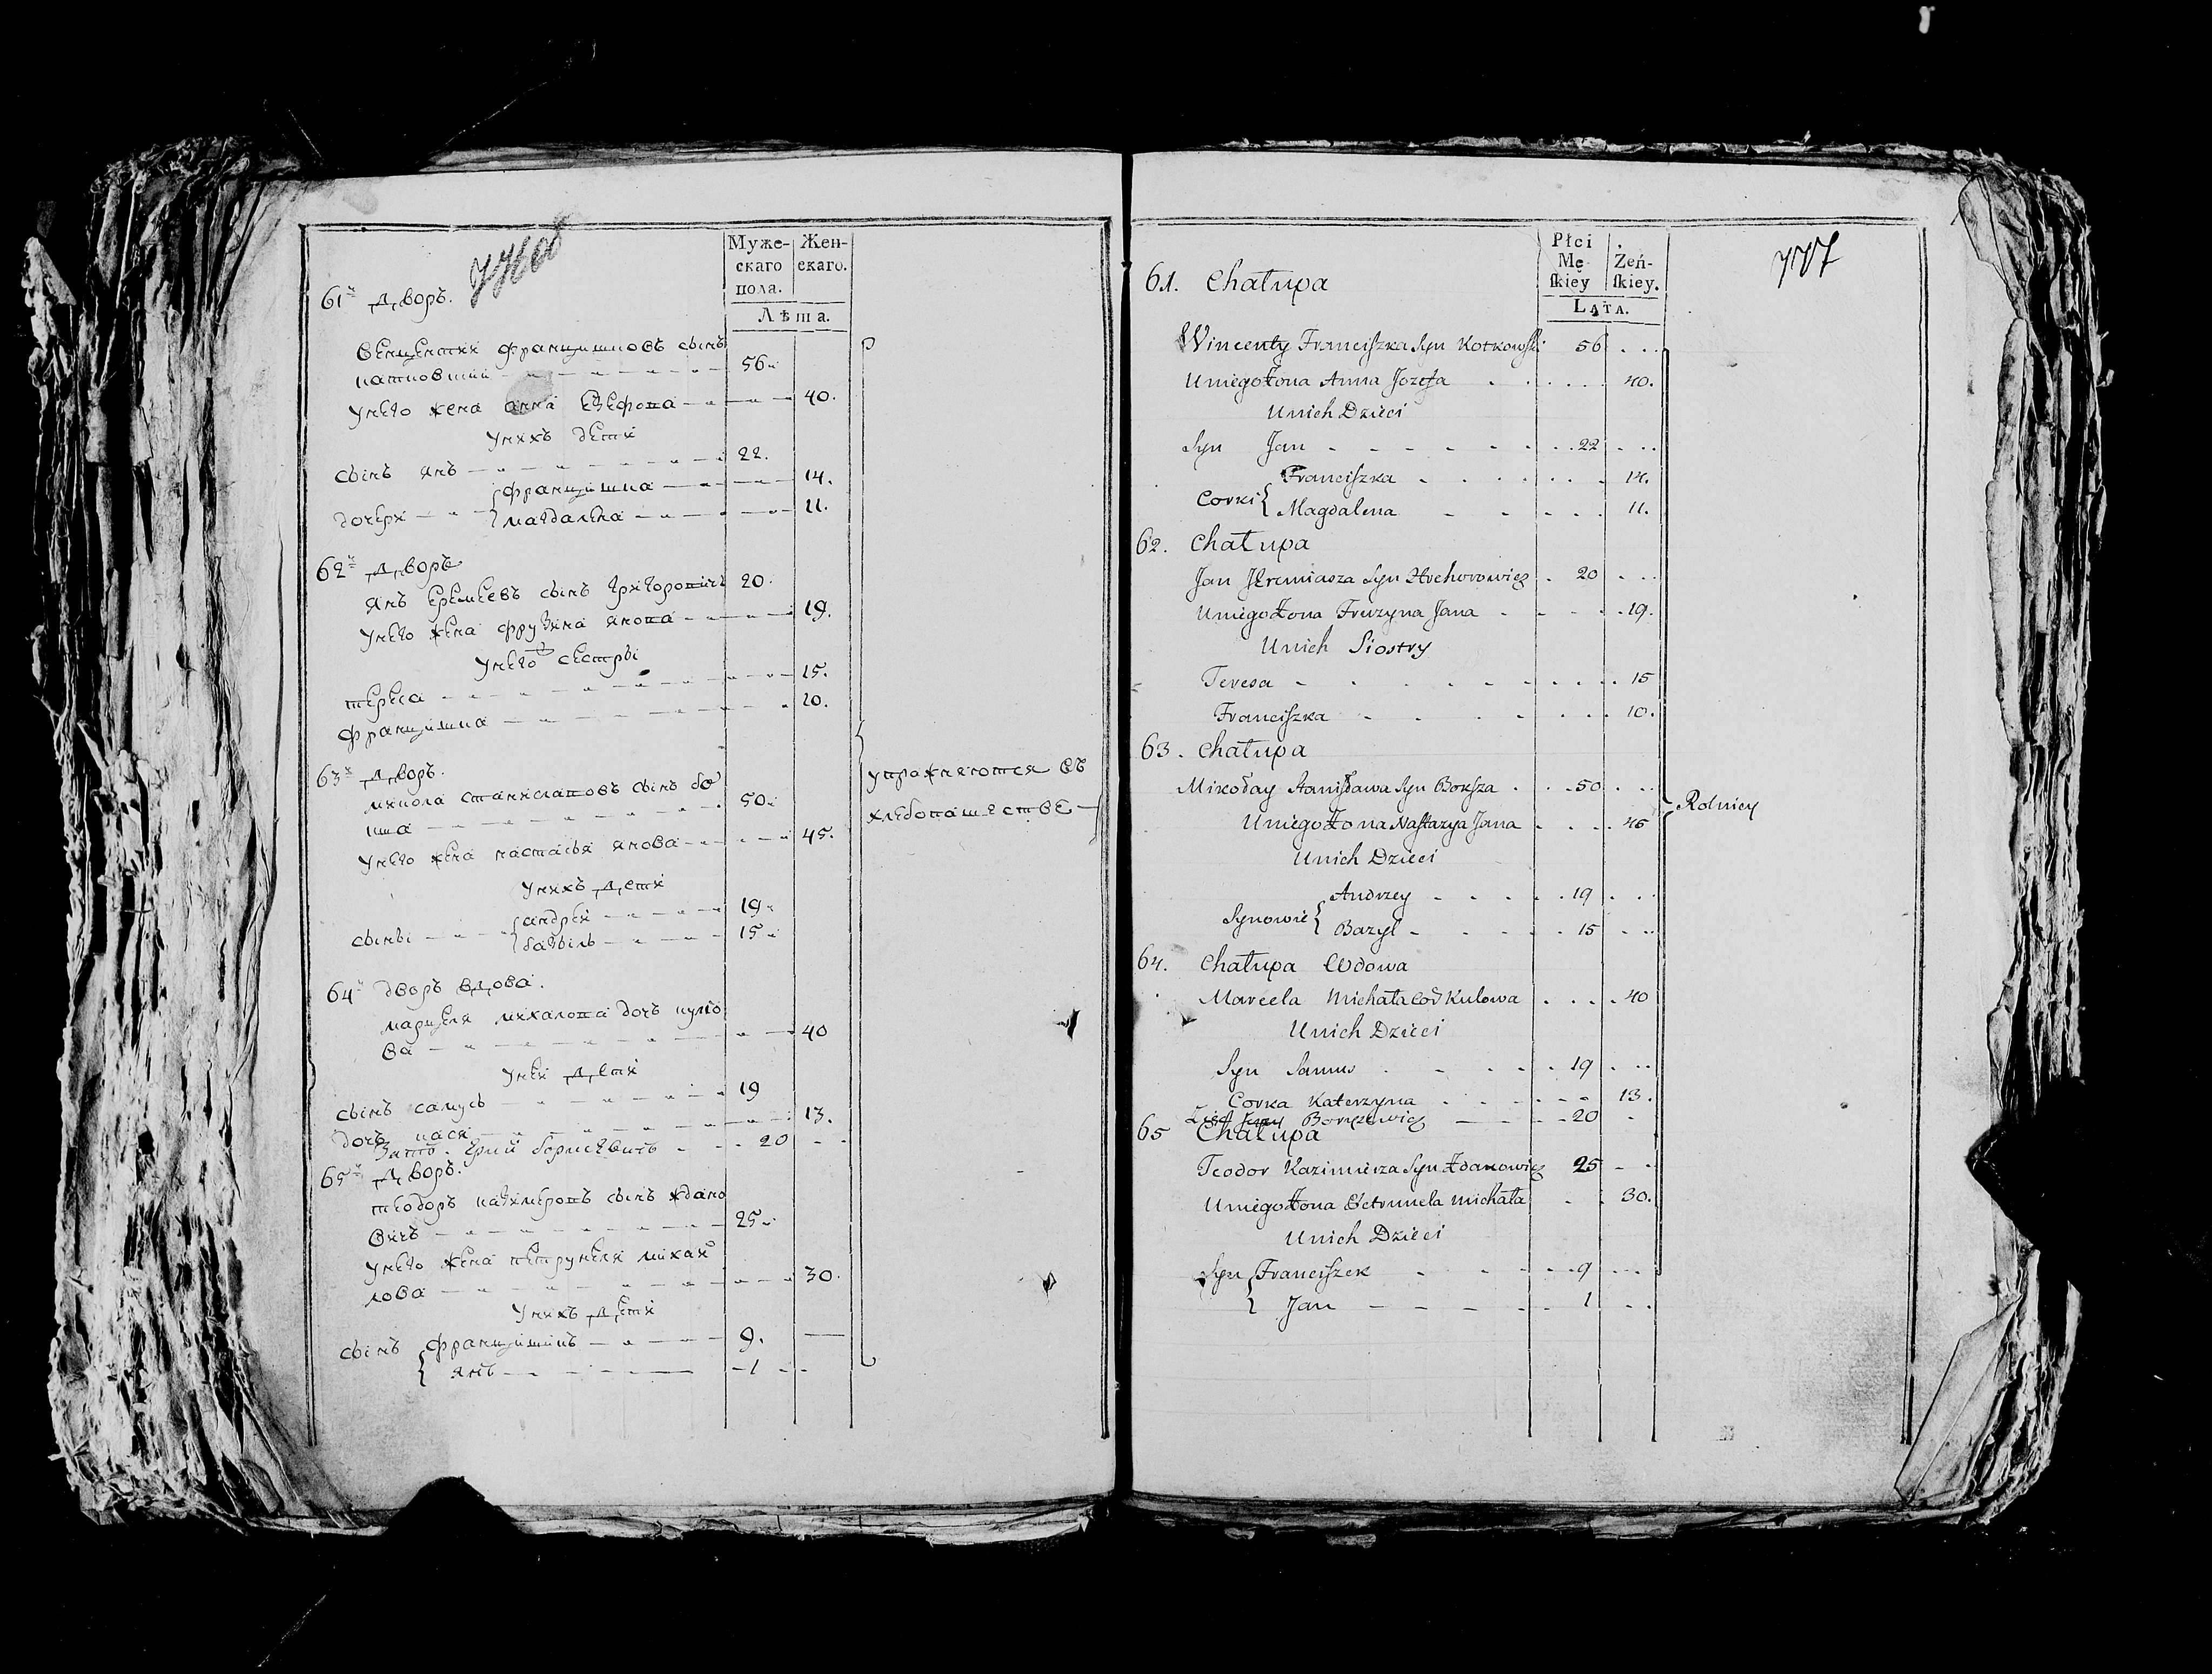 Муже-
скаго
пола.
Жен-
скаго.
Лѣта.
61й Дворъ.
Венцентий Францишковъ сынъ
катковский 56
у него жена анна Езефова 40.
у нихъ дети
сынъ янъ 22.
францишка 14.
дочери
магдалена 11.
62й Дворъ
янъ Еремеевъ сынъ Григоровичъ 20.
у него жена фрузина янова 19.
у него сестры
тереса 15.
францишка 10.
63й Дворъ.
микола станиславовъ сынъ бо
кша 50
у него жена настасья янова 45.
у нихъ дети
андрей 19
сыны
базыль 15
64й дворъ вдова.
марцеля михалова дочь кулио
ва 40
у ней дети
сынъ самусь 19
дочь кася 13.
Зять Юрий борисевичь 20
65й Дворъ.
теодоръ казимеровъ сынъ ждано
вичъ 25
у него жена петрунеля михай
лова 30.
у нихъ дети
сынъ францишикъ 9.
янъ 1
упражняются въ
хлебопашестве
Płci
Mę-
skiey
Żeń-
skiey.
LATA.
707
61. Chałupa
Wincenty Franciszka Syn Kotkowski 56
U niego Żona Anna Jozefa 40.
U nich Dzieci
Syn Jan 22
Franciszka 14.
Corki
Magdalena 11.
62. Chałupa
Jan Jeremiasza Syn Hrehorowicz 20
U niego Żona Fruzyna Jana 19.
U nich Siostry
Teresa 15
Franciszka 10.
63. Chałupa
Mikołay Stanisława Syn Boksza 50
U niego Żona Nastazya Jana 45
U nich Dzieci
Andrzey 19
Synowie
Bazyl 15
64. Chałupa Wdowa
Marcela Michała Cor Kulowa 40
U nich Dzieci
Syn Samus 19
Corka Katerzyna 13.
Zięć Borysewicz 20
65 Chałupa
Teodor Kazimierza Syn Żdanowicz 25
U niego Żona Petrunela Michała 30.
U nich Dzieci
Syn Franciszek 9
Jan 1
Rolnicy